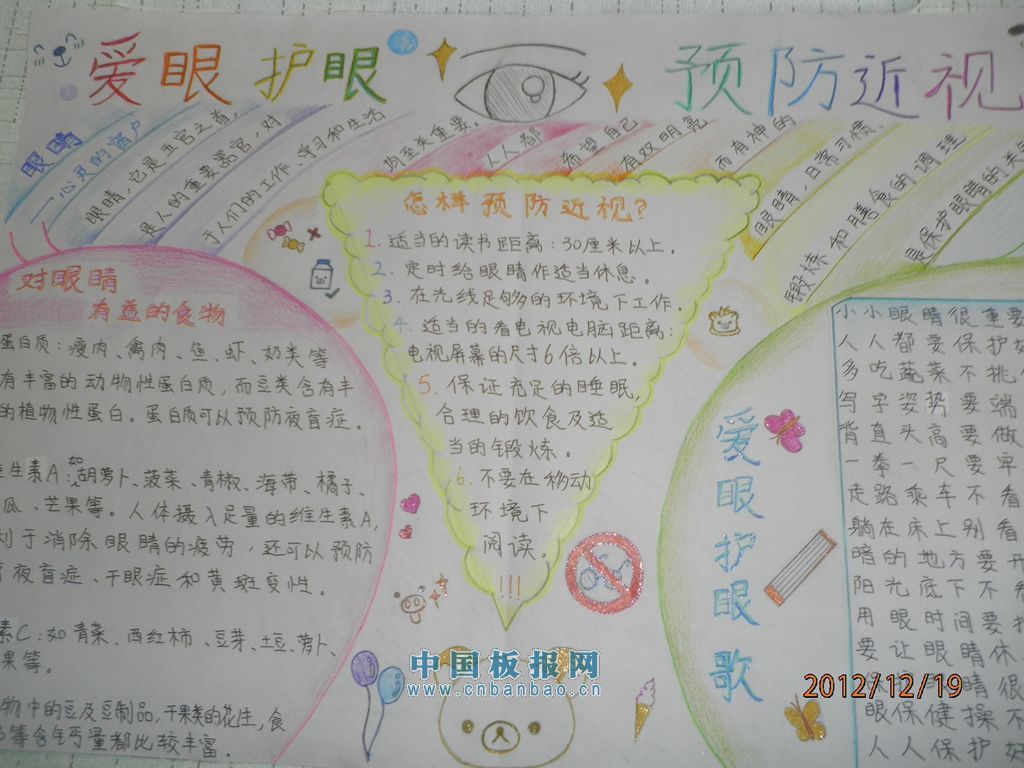 爱眼护眼 预防近视
眼睛
一心灵的窗户
眼睛,它是五官之首,
是人的重要器官,对
于人们的工作、学习和生活
均至关重要。
人人都
希望自己
有双明亮
而有神的
眼睛,日常习惯、
锻炼和膳食的调理
是保护眼睛的关
对眼睛
有益的食物
蛋白质:瘦肉、禽肉、鱼、虾、奶类等
有丰富的动物性蛋白质,而豆类含有丰
的植物性蛋白。蛋白质可以预防夜盲症。
生素A:如胡萝卜、菠菜、青椒、海带、橘子、
瓜、芒果等。人体摄入足量的维生素A,
利于消除眼睛的疲劳,还可以预防
夜盲症、干眼症和黄斑变性。
素C:如青菜、西红柿、豆芽、土豆、萝卜、
果等。
物中的豆及豆制品,干果类的花生,食
等含钙量都比较丰富。
怎样预防近视?
1.适当的读书距离:30厘米以上。
2.定时给眼睛作适当休息。
3.在光线足够的环境下工作。
4.适当的看电视电脑距离:
电视屏幕的尺寸6倍以上。
5.保证充足的睡眠,
合理的饮食及适
当的锻炼。
6.不要在移动
环境下
阅读。
!!!
爱眼护眼歌
小小眼睛很重要
人人都要保护好
多吃蔬菜不挑
写字姿势要端
背直头高要做
一拳一尺要牢
走路乘车不看
躺在床上别看
暗的地方要开
阳光底下不看
用眼时间要
要让眼睛休
保护眼睛很
眼保健操不
人人保护好
中国板报网
www.cnbanbao.cn
2012/12/19